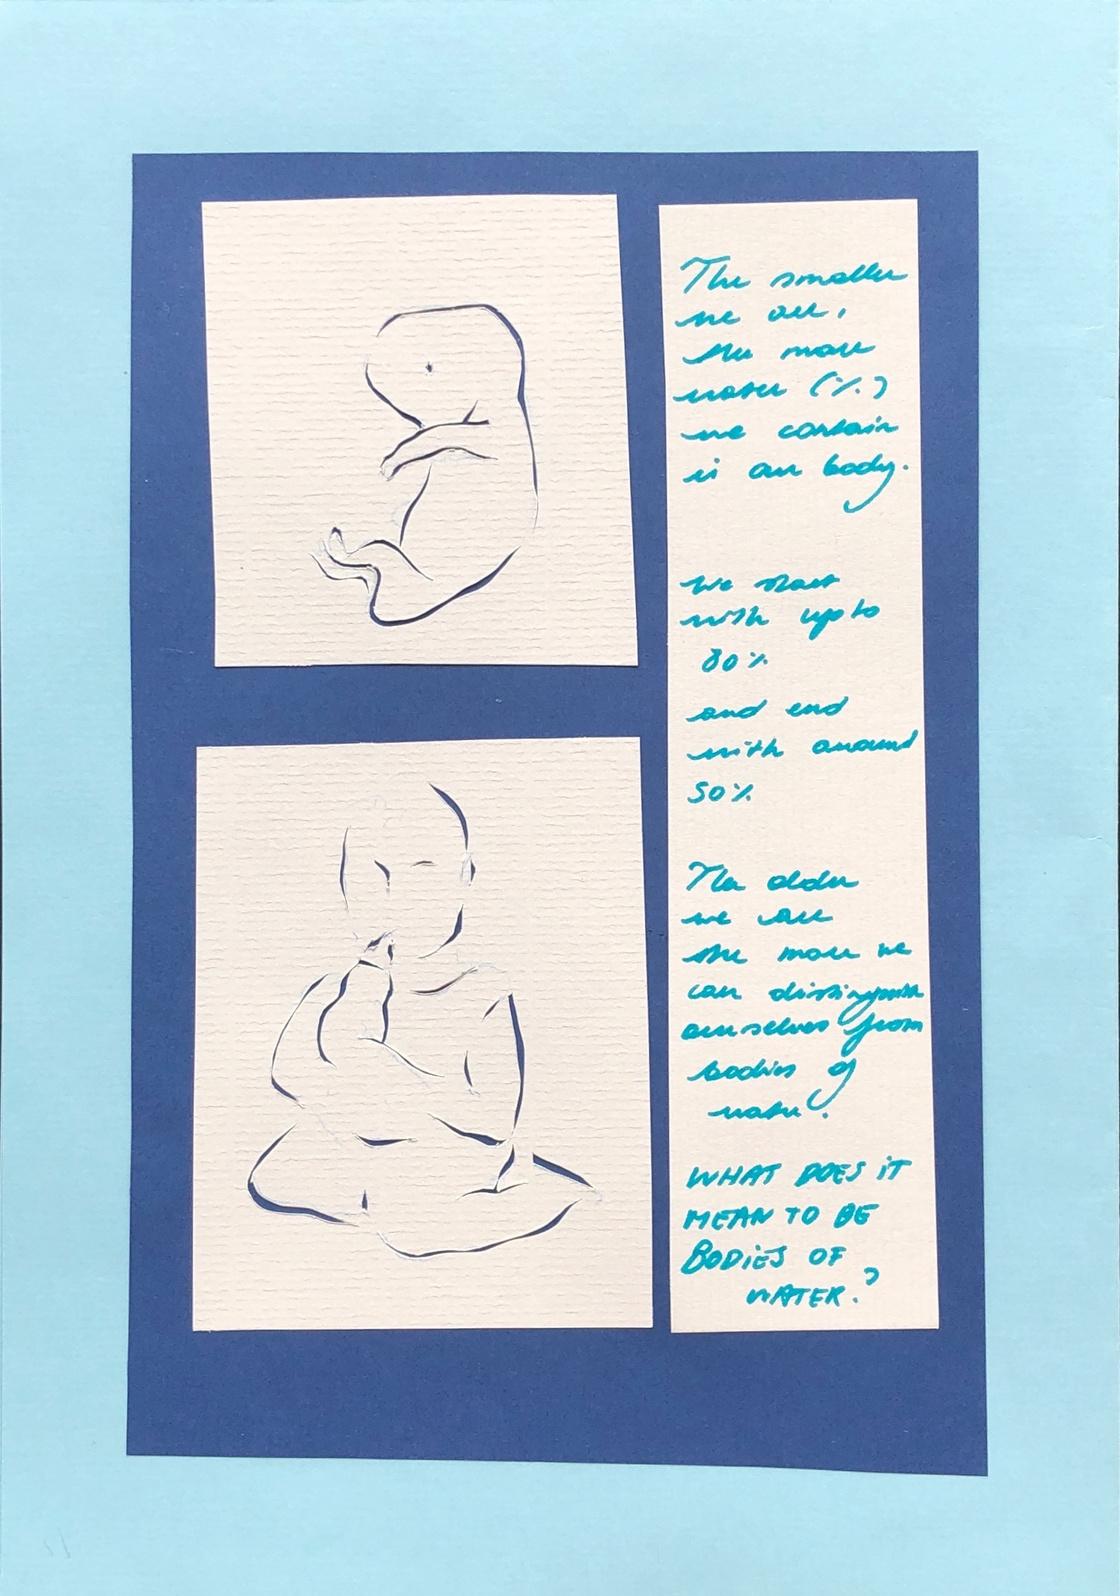 The smaller
we are,
the more
water (%)
we contain
in our body.
We start
with up to
80%
and end
with around
50%
The older
we are
the more we
can distinguish
ourselves from
bodies of
water.
WHAT DOES iT
MEAN TO BE
BODiES OF
WATER.?